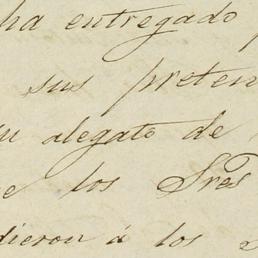 ha entregado
sus preten
su alegato de
e los Sres
dieron á los S